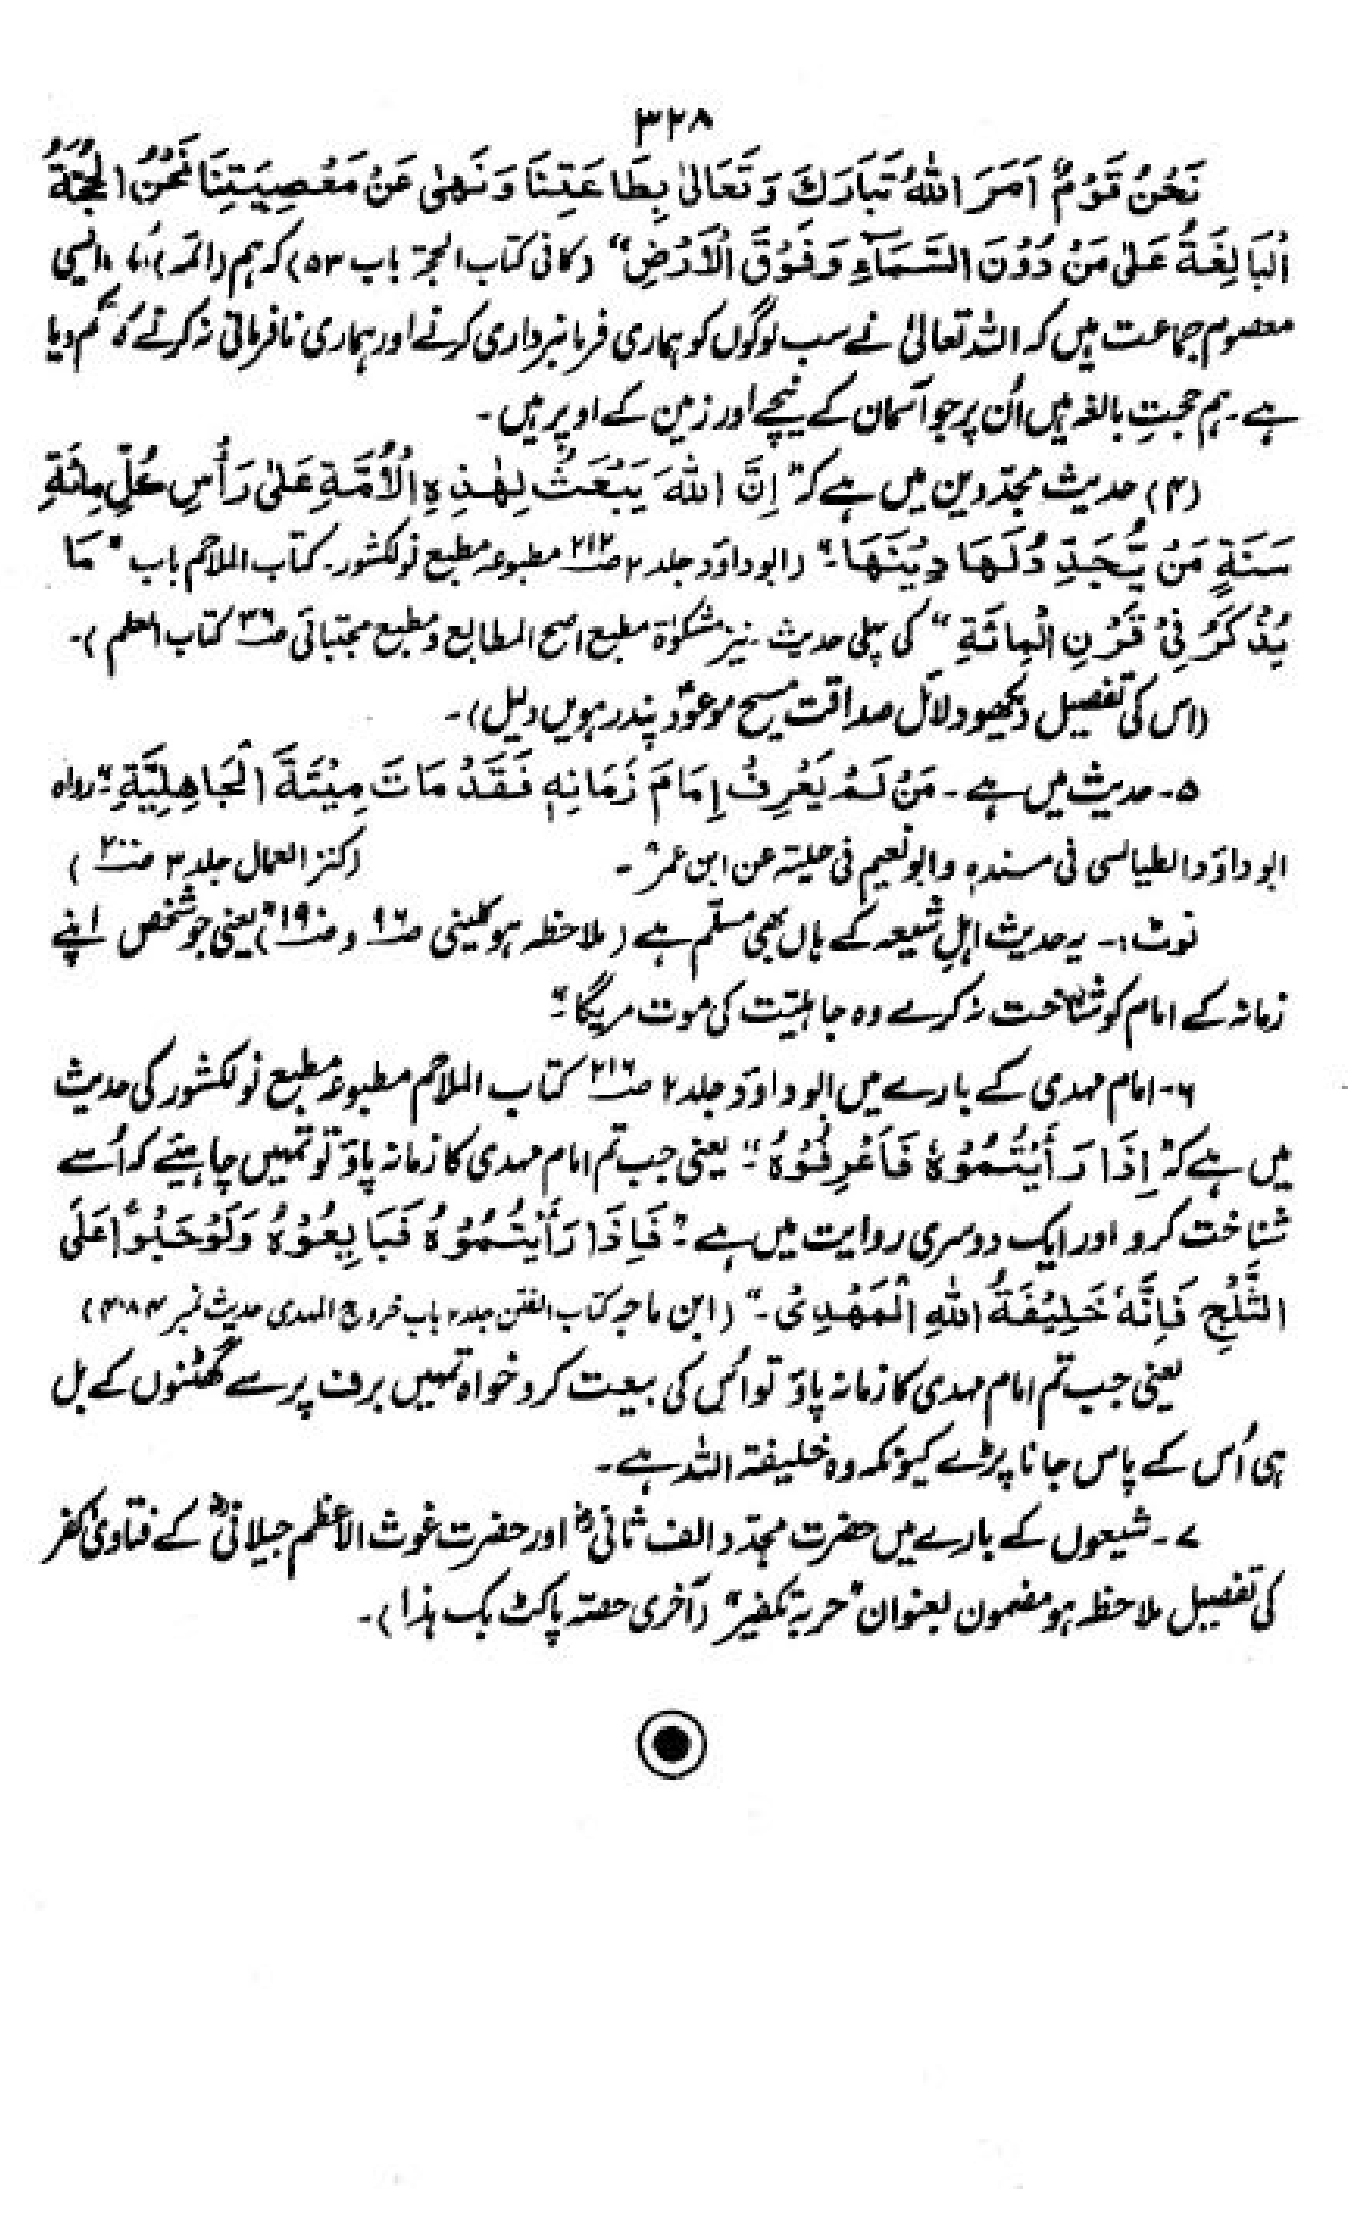 ۳۲۸
نَحْنُ قَوْمٌ اَمَرَ اللّٰهُ تَبَارَكَ وَ تَعَالٰى بِطَاعَتِنَا وَ نَهٰى عَنْ مَعْصِيَتِنَا نَحْنُ الْحُجَّةُ
الْبَالِغَةُ عَلٰى مَنْ دُوْنَ السَّمَآءِ وَ فَوْقَ الْاَرْضِ" (کافی کتاب الحجۃ باب ۵۳) کہ ہم (ائمہ) ایسی
معصوم جماعت ہیں کہ اللہ تعالیٰ نے سب لوگوں کو ہماری فرمانبرداری کرنے اور ہماری نافرمانی نہ کرنے کا حکم دیا
ہے۔ ہم حجتِ بالغہ ہیں اُن پر جو آسمان کے نیچے اور زمین کے اوپر ہیں۔
(۴) حدیث مجدّدین میں ہے کہ "اِنَّ اللّٰهَ يَبْعَثُ لِهٰذِهِ الْاُمَّةِ عَلٰى رَأْسِ كُلِّ مِائَةِ
سَنَةٍ مَنْ يُّجَدِّدُ لَهَا دِيْنَهَا۔" (ابوداؤد جلد ۲ صـ۲۱۲ مطبوعہ مطبع نولکشور۔ کتاب الملاحم باب "مَا
يُذْكَرُ فِىْ قَرْنِ الْمِائَةِ" کی پہلی حدیث۔ نیز مشکوٰۃ مطبع اصح المطابع و مطبع مجتبائی صـ۳۶ کتاب العلم)۔
(اس کی تفصیل دیکھو دلائل صداقت مسیح موعودؑ پندرہویں دلیل)۔
۵۔ حدیث میں ہے۔ مَنْ لَمْ يَعْرِفْ اِمَامَ زَمَانِهٖ فَقَدْ مَاتَ مِيْتَةَ الْجَاهِلِيَّةِ۔" رواہ
ابوداؤد الطیالسی فی مسندہٖ وابونعیم فی حلیتہ عن ابن عمرؓ۔ (کنز العمال جلد ۳ صـ۲۰۰)
نوٹ:۔ یہ حدیث اہلِ شیعہ کے ہاں بھی مسلّم ہے (ملاحظہ ہو کلینی صـ۹۶ و صـ۱۹۰) "یعنی جو شخص اپنے
زمانہ کے امام کو شناخت نہ کرے وہ جاہلیّت کی موت مریگا۔"
۶۔ امام مہدی کے بارے میں ابوداؤد جلد ۲ صـ۲۱۶ کتاب الملاحم مطبوعہ مطبع نولکشور کی حدیث
میں ہے کہ "اِذَا رَأَيْتُمُوْهُ فَاعْرِفُوْهُ"۔ یعنی جب تم امام مہدی کا زمانہ پاؤ تو تمہیں چاہیئے کہ اُسے
شناخت کرو اور ایک دوسری روایت میں ہے:۔ "فَاِذَا رَأَيْتُمُوْهُ فَبَايِعُوْهُ وَلَوْحَبْوًا عَلَى
الثَّلْجِ فَاِنَّهٗ خَلِيْفَةُ اللّٰهِ الْمَهْدِىُّ۔" (ابن ماجہ کتاب الفتن جلد ۲ باب خروج المہدی حدیث نمبر ۴۰۸۴)
یعنی جب تم امام مہدی کا زمانہ پاؤ تو اُس کی بیعت کرو خواہ تمہیں برف پر سے گھٹنوں کے بل
ہی اُس کے پاس جانا پڑے کیونکہ وہ خلیفۃ اللہ ہے۔
۷۔ شیعوں کے بارے میں حضرت مجدّد الف ثانیؒ اور حضرت غوث الاعظم جیلانیؒ کے فتاویٰ کفر
کی تفصیل ملاحظہ ہو مضمون بعنوان "حربۂ تکفیر" (آخری حصّہ پاکٹ بک ہذا)۔